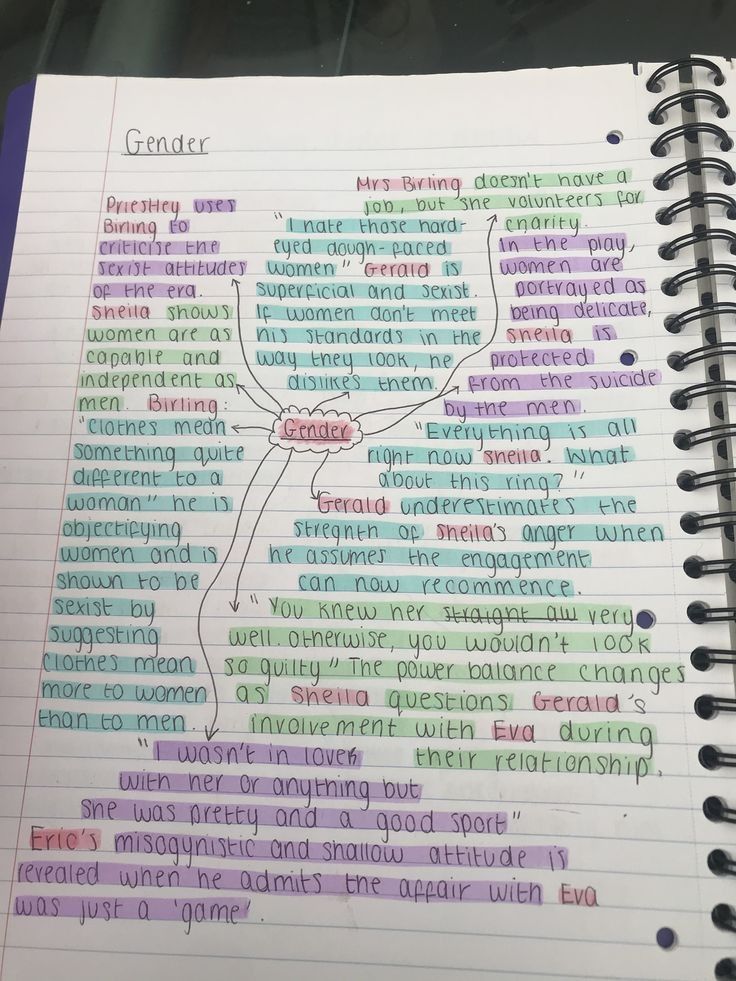 Gender
Mrs Birling doesn't have a
job, but she volunteers for
charity.
Priestley uses
Birling to
criticise the
sexist attitudes
of the era.
Sheila shows
women are as
capable and
independent as
men. Birling:
"Clothes mean
something quite
different to a
woman" he is
objectifying
women and is
shown to be
sexist by
suggesting
clothes mean
more to women
than to men.
"I hate those hard-
eyed dough-faced
women" Gerald is
superficial and sexist.
If women don't meet
his standards in the
way they look, he
dislikes them.
In the play,
women are
portrayed as
being delicate,
Sheila is
protected
from the suicide
by the men.
Gender
"Everything is all
right now Sheila. What
about this ring?"
Gerald underestimates the
stregnth of Sheila's anger when
he assumes the engagement
can now recommence.
"You knew her straight all very
well. otherwise, you wouldn't look
so guilty" The power balance changes
as Sheila questions Gerald's
involvement with Eva during
their relationship.
"I wasn't in love
with her or anything but
she was pretty and a good sport"
Eric's misogynistic and shallow attitude is
revealed when he admits the affair with Eva
was just a 'game'.